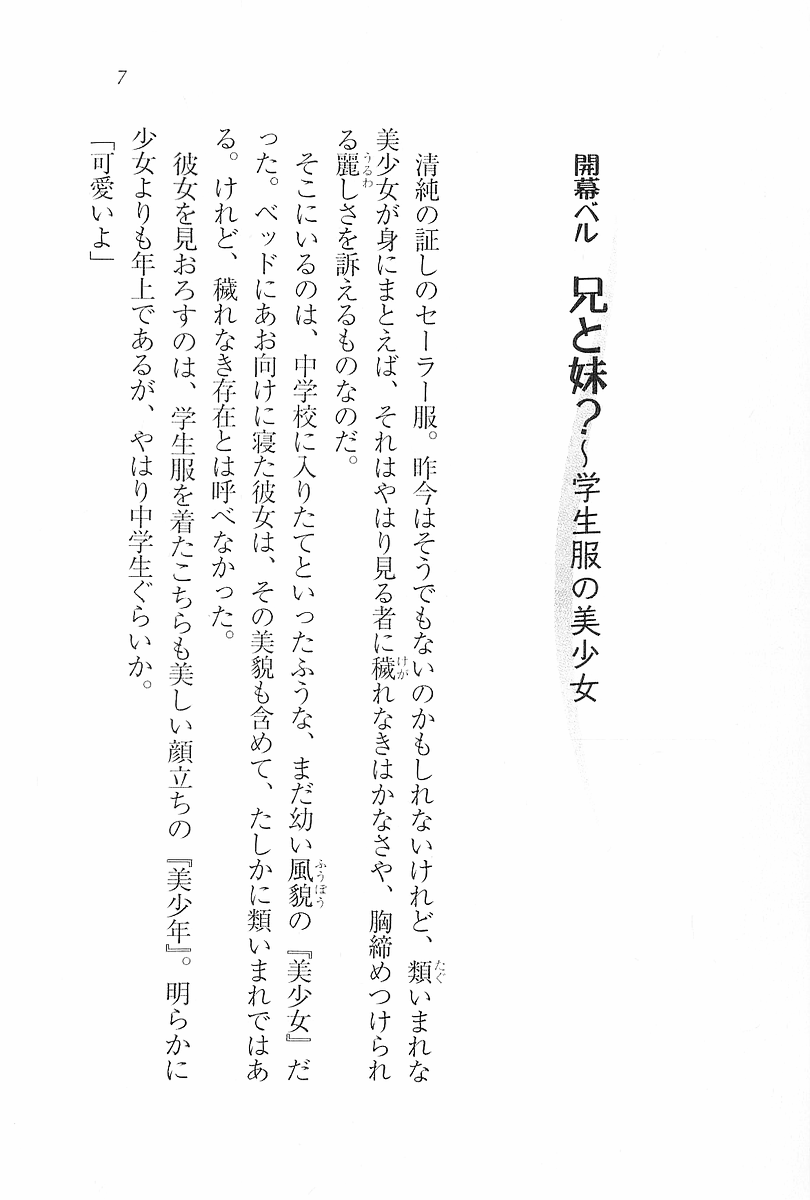 7
開幕ベル　兄と妹？～学生服の美少女
清純の証しのセーラー服。昨今はそうでもないのかもしれないけれど、類いまれな
美少女が身にまとえば、それはやはり見る者に穢れなきはかなさや、胸締めつけられ
る麗しさを訴えるものなのだ。
そこにいるのは、中学校に入りたてといったふうな、まだ幼い風貌の『美少女』だ
った。ベッドにあお向けに寝た彼女は、その美貌も含めて、たしかに類いまれではあ
る。けれど、穢れなき存在とは呼べなかった。
彼女を見おろすのは、学生服を着たこちらも美しい顔立ちの『美少年』。明らかに
少女よりも年上であるが、やはり中学生ぐらいか。
「可愛いよ」